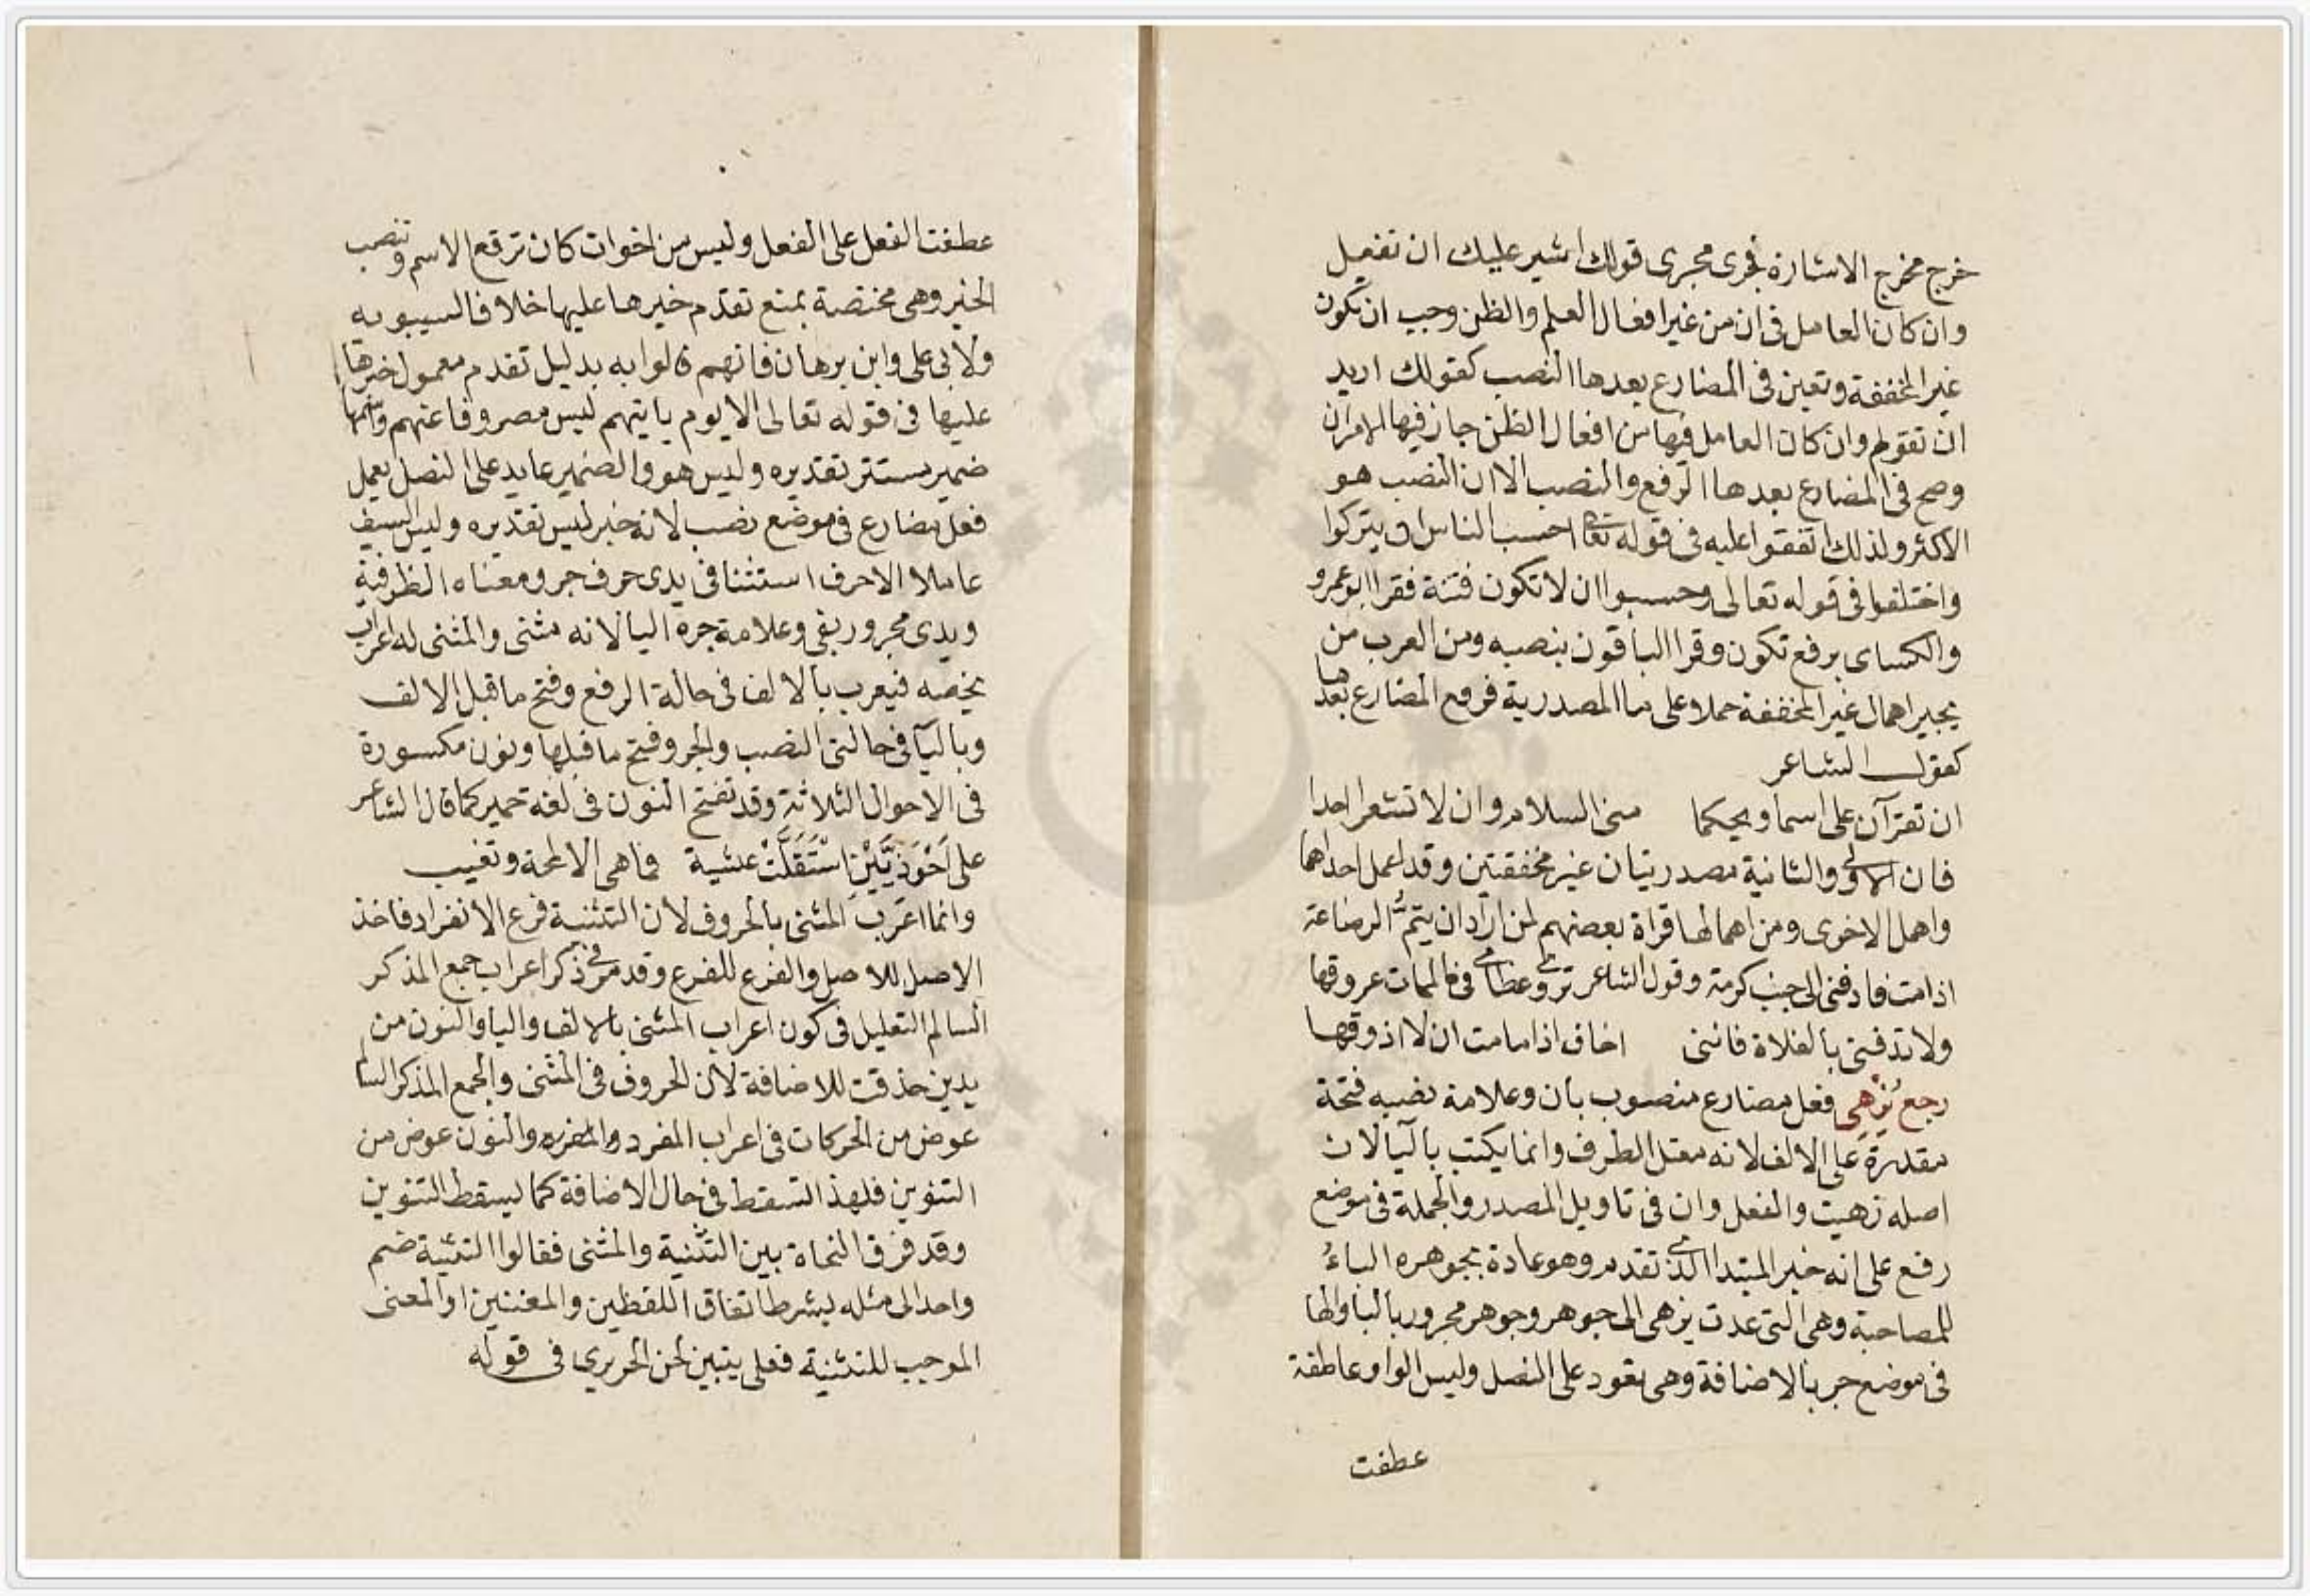 خرج مخرج الاشارة فجرى مجرى قولك اشير عليك ان تفعل
وان كان العامل فى ان من غير افعال العلم والظن وجب ان تكون
غير المخففة وتعين فى المضارع بعدها النصب كقولك اريد
ان تقوم وان كان العامل فيها من افعال الظن جاز فيها الامران
وصح فى المضارع بعدها الرفع والنصب الا ان النصب هو
الاكثر ولذلك اتفقوا عليه فى قوله تعالى احسب الناس ان يتركوا
واختلفوا فى قوله تعالى وحسبوا ان لا تكون فتنة فقرا ابو عمرو
والكساى برفع تكون وقرا الباقون بنصبه ومن العرب من
يجيز اهمال غير المخففة حملا على ما المصدرية فرفع المضارع بعدها
كقول الشاعر
ان تقرآن على اسما ويحكما منى السلام وان لا تشعرا احدا
فان الاولى والثانية مصدريتان غير مخففتين وقد اعمل احداهما
واهمل الاخرى ومن اهمالها قراة بعضهم لمن اراد ان يتمُّ الرضاعة
اذا مت فادفنى الى جنب كرمة وقول الشاعر تروى عظامى فى الممات عروقها
ولا تدفنى بالفلاة فاننى اخاف اذا ما مت ان لا اذوقها
رجع يُزْهَى فعل مضارع منصوب بان وعلامة نصبه فتحة
مقدرة على الالف لانه معتل الطرف وانما يكتب باليآ لان
اصله زهيت والفعل وان فى تاويل المصدر والجملة فى موضع
رفع على انه خبر المبتدا الذى تقدم وهو عادة بجوهره الباءُ
للمصاحبة وهى التى عدت يزهى الى جوهر وجوهر مجرور بالبا والها
فى موضع جر بالاضافة وهى تعود على النصل وليس الواو عاطفة
عطفت
عطفت الفعل على الفعل وليس من اخوات كان ترفع الاسم وتنصب
الخبر وهى مختصة بمنع تقدم خبرها عليها خلافا لسيبويه
ولابى على وابن برهان فانهم قالوا به بدليل تقدم معمول خبرها
عليها فى قوله تعالى الا يوم ياتيهم ليس مصروفا عنهم واسمها
ضمير مستتر تقديره وليس هو والضمير عايد على النصل يعمل
فعل مضارع فى موضع نصب لانه خبر ليس تقديره وليس السيف
عاملا الا حرف استثنا فى يدى حرف جر ومعناه الظرفية
ويدى مجرور بفى وعلامة جره اليا لانه مثنى والمثنى له اعراب
يخصه فيعرب بالالف فى حالة الرفع وفتح ما قبل الالف
وباليآ فى حالتى النصب والجر وفتح ما قبلها ونون مكسورة
فى الاحوال الثلاثة وقد تفتح النون فى لغة حمير كما قال الشاعر
على اَحْوَذِيَّيْنَ اسْتَقَلَّتْ عشية فما هى الا لمحة وتغيب
وانما اعرب المثنى بالحروف لان التثنية فرع الانفراد فاخذ
الاصل للاصل والفرع للفرع وقد مر فى ذكر اعراب جمع المذكر
السالم التعليل فى كون اعراب المثنى بالالف واليا والنون من
يدين حذفت للاضافة لان الحروف فى المثنى والجمع المذكر السالم
عوض من الحركات فى اعراب المفرد والنون عوض من
التنوين فلهذا تسقط فى حال الاضافة كما يسقط التنوين
وقد فرق النحاة بين التثنية والمثنى فقالوا التثنية ضم
واحد الى مثله بشرط اتفاق اللفظين والمعنيين او المعنى
الموجب للتثنية فعلى يتبين لحن الحريرى فى قوله